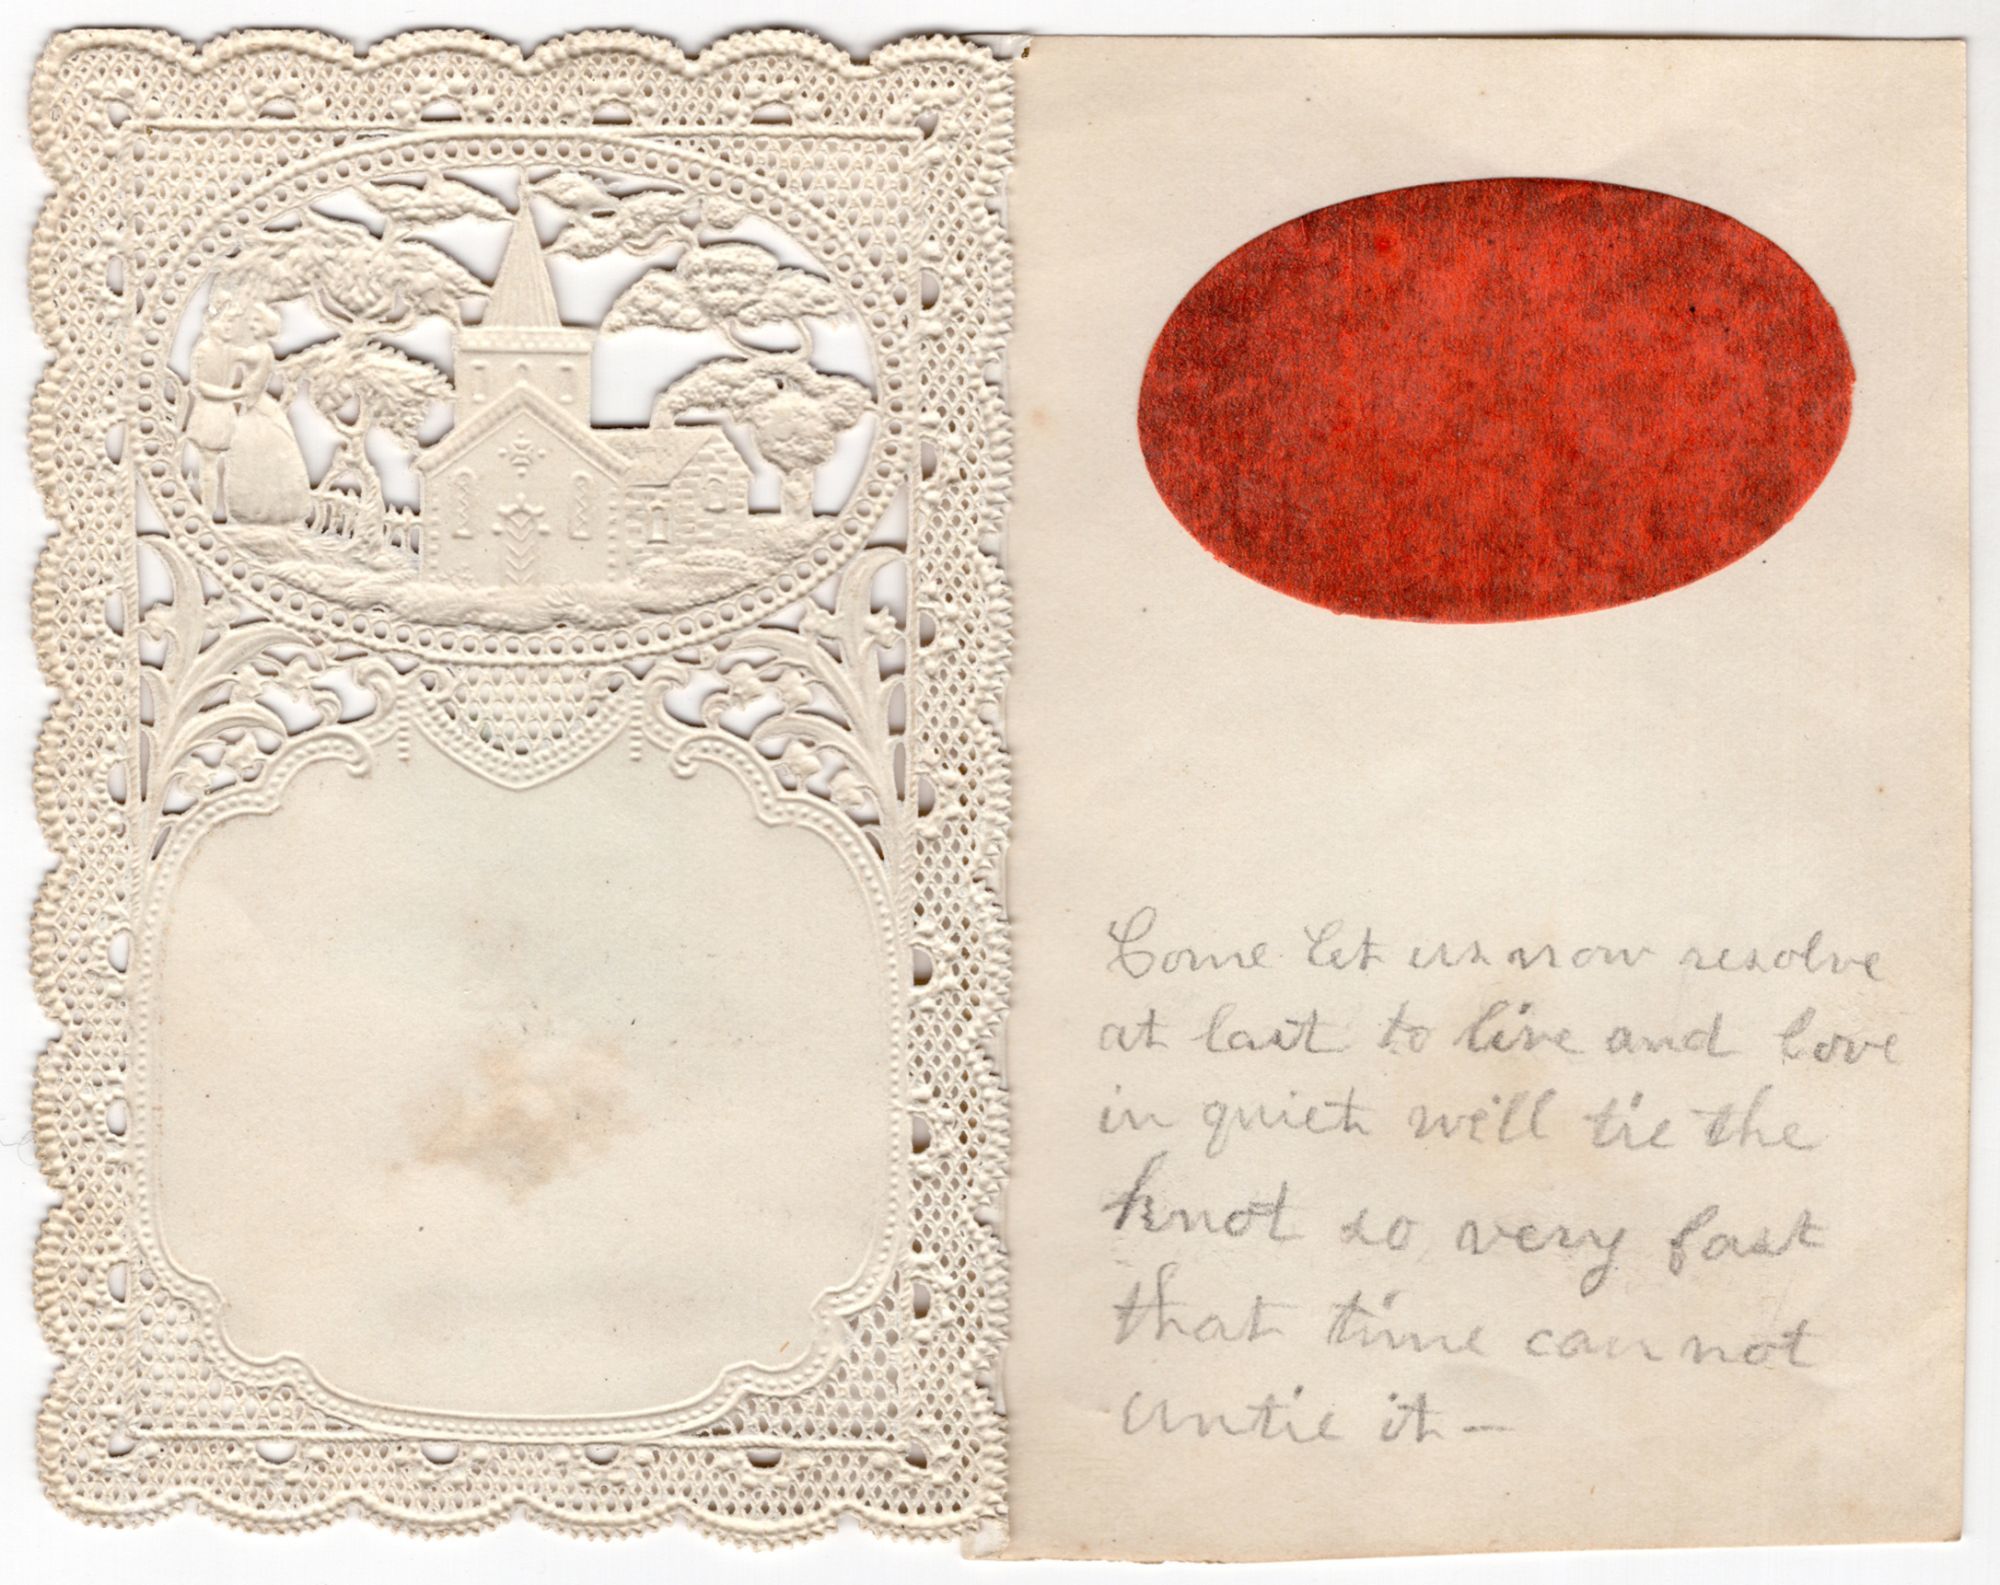 Come let us now resolve
at last to live and love
in quiet we'll tie the
knot so very fast
that time can not
untie it —